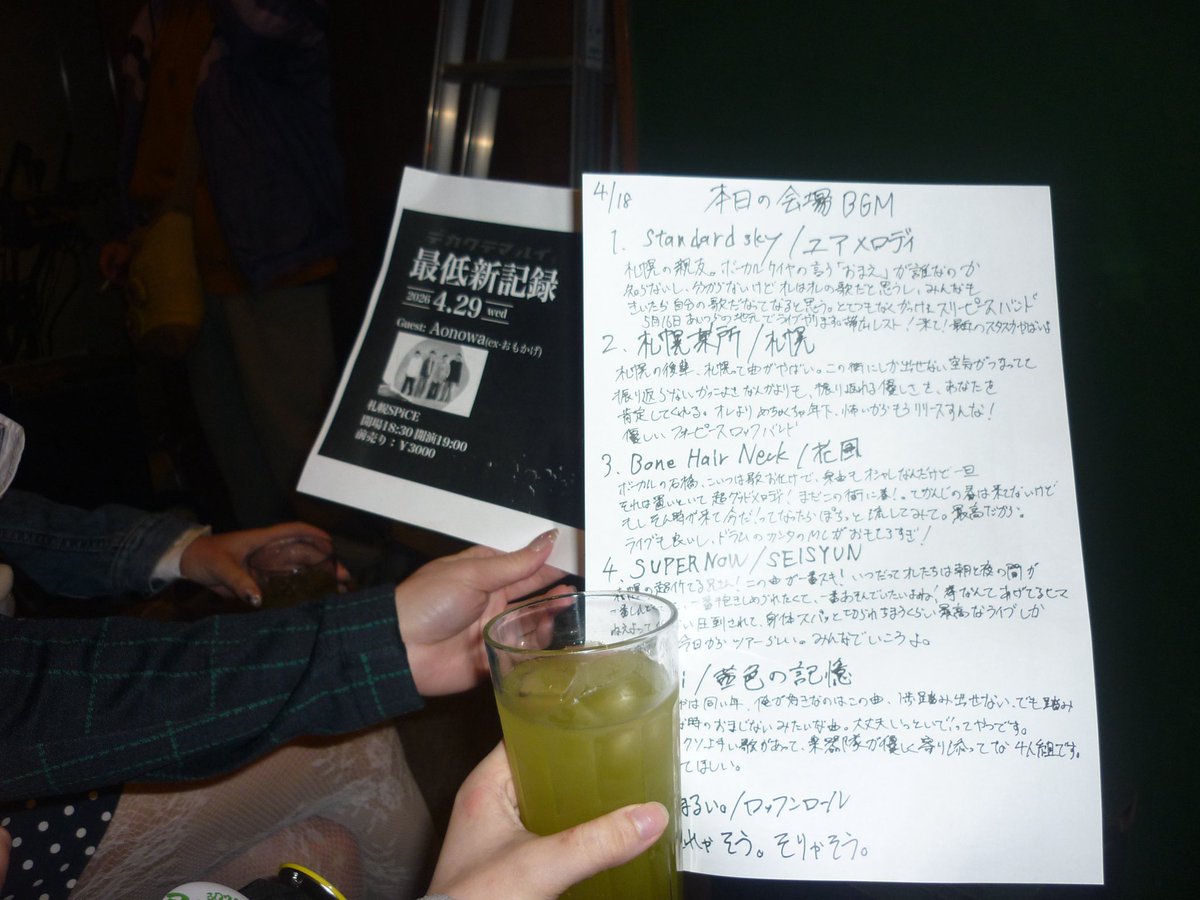 デカクテマルイ。
最低新記録
2026 4.29 wed
Guest: Aonowa(ex-おもかげ)
札幌SPiCE
開場18:30 開演19:00
前売り：¥3000
4/18 本日の会場BGM
1. Standard sky/ユアメロディ
札幌の親友。ボーカルタイヤの言う「おまえ」が誰なのか
知らないし、分からないけどオレはオレの歌だと思うし、みんなも
きいたら自分の歌だなってなると思う。とてつもなくかっけぇスリーピースバンド
5月16日あいつらの地元でライブやります
2. 札幌某所/札幌
札幌の後輩、札幌って曲がやばい。この街にしか出せない空気がつまってて
振り返らないかっこよさなんかよりも、振り返れる優しさを、あなたを
肯定してくれる。オレよりめちゃくちゃ年下、怖いからもうリリースすんな！
優しいフォーピースロックバンド
3. Bone Hair Neck/花風
ボーカルの石橋、こいつは歌お化けで、オシャレなんだけど一旦
それは置いといて超グッドメロディ！まだこの街に春！ってかんじの春は来てないけど
もしそん時が来て今だ！ってなったらぽちっと流してみて。最高だから。
ライブも良いし、ドラムのカンタのMCがおもしろすぎ！
4. SUPER NOW/SEISYUN
札幌の超イケてる兄さん！この曲が一番スキ！いつだってオレたちは朝と夜の間が
一番しんどくて、一番抱きしめられたくて、一番あそんでいたいよね
圧倒されて、身体スパッと切られちまうくらい最高なライブしか
今日からツアーらしい。みんなでいこうよ。
/茜色の記憶
は同い年、俺が好きなのはこの曲、1歩踏み出せない、でも踏み
時のおまじないみたいな曲。大丈夫しっといでってやつです。
クソよすい歌があって、楽器隊が優しく寄り添ってな4人組です。
てほしい。
まるい。/ロッフンロール
そう。そりゃそう。